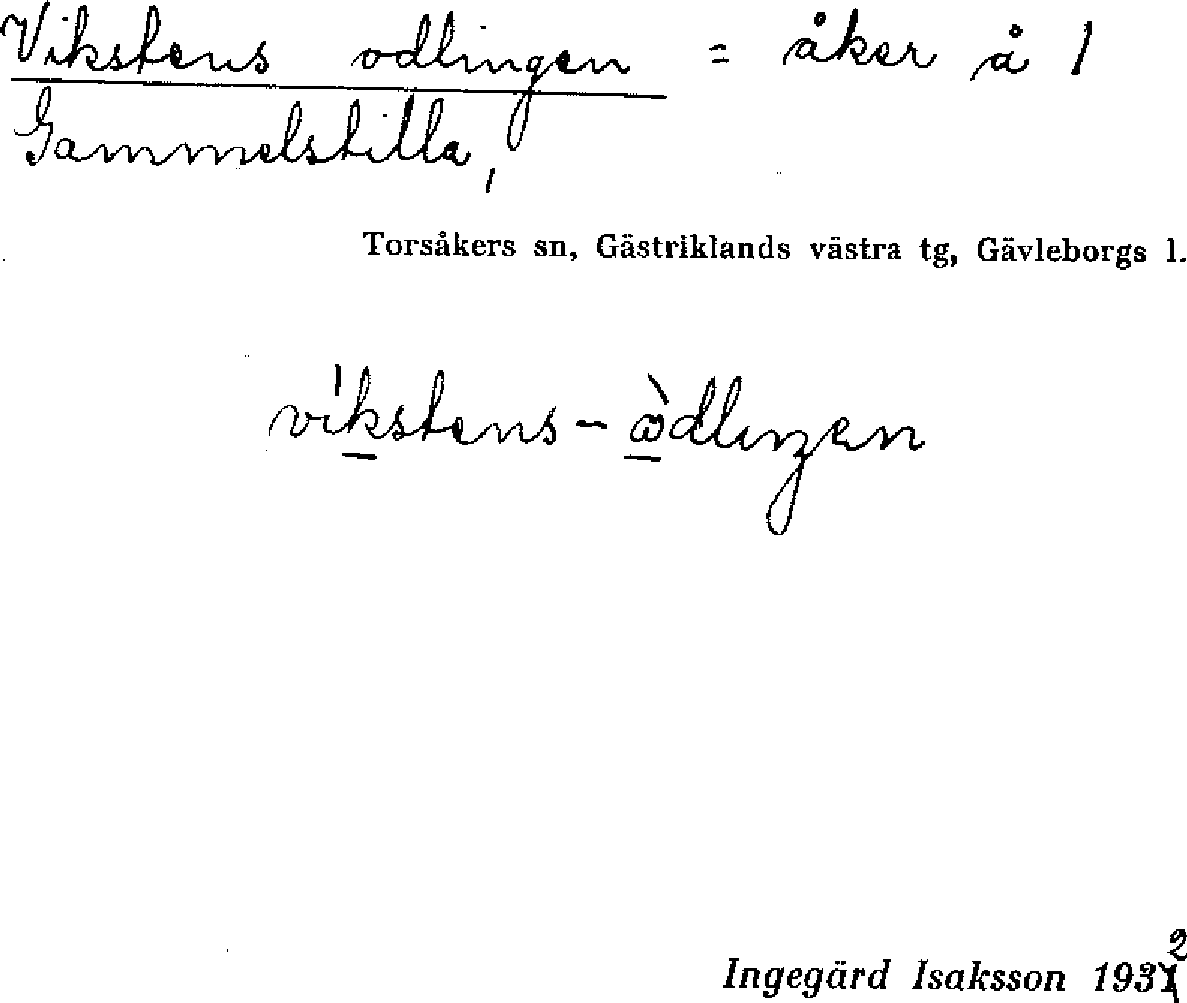 Vikstens odlingen = åker å 1
Gammelstilla,
Torsåkers sn, Gästriklands västra tg, Gävleborgs l.
vı́kstens-ὼdlıŋen
Ingegärd Isaksson 1932